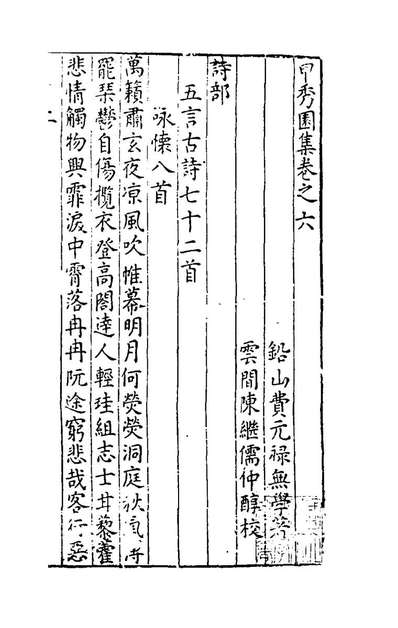 甲秀園集卷之六
鉛山費元祿無學著
雲間陳繼儒仲醇校
詩部
五言古詩七十二首
咏懷八首
萬籟肅玄夜凉風吹帷幕明月何熒熒洞庭秋氣
罷琴鬱自傷攬衣登高閣達人輕珪組志士甘藜藿
悲情觸物興霏淚中霄落冉冉阮途窮悲哉客行惡